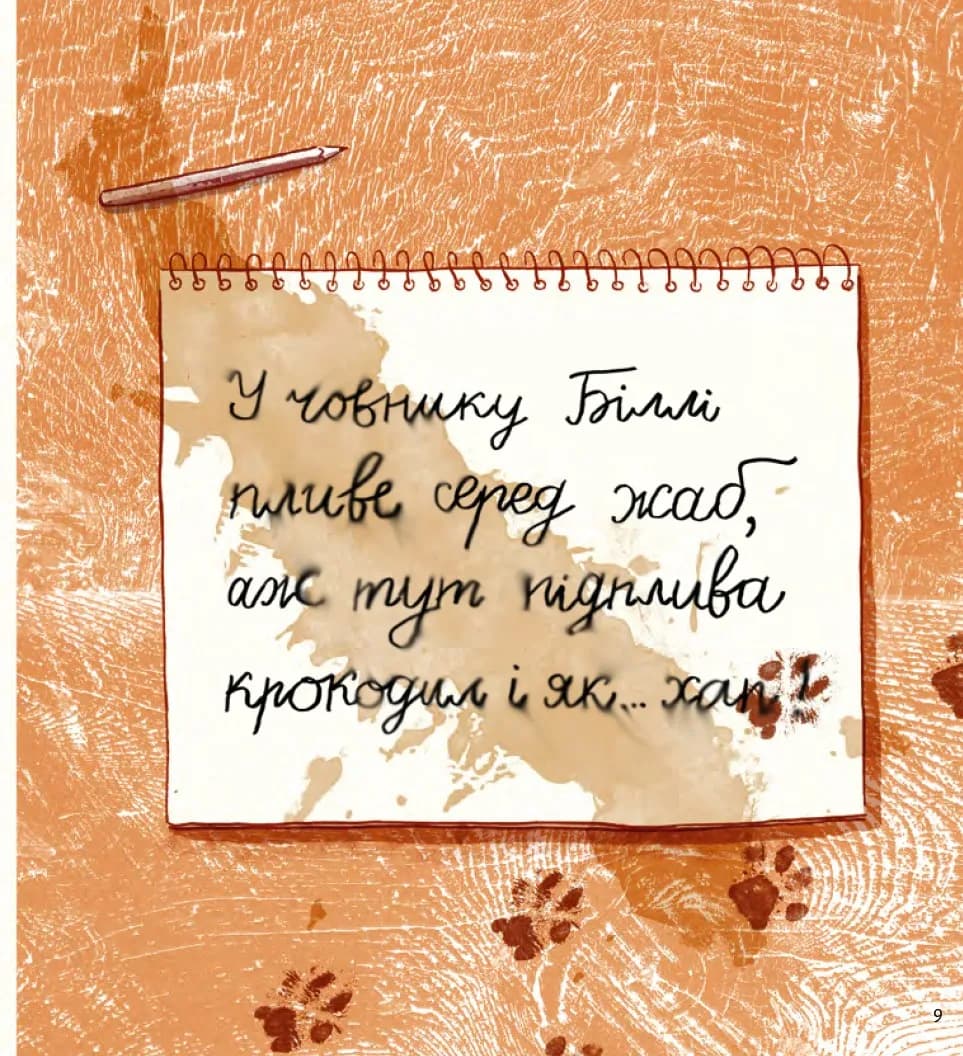 У човнику Біллі
пливе серед жаб,
аж тут підплива
крокодил і як... хап!
9